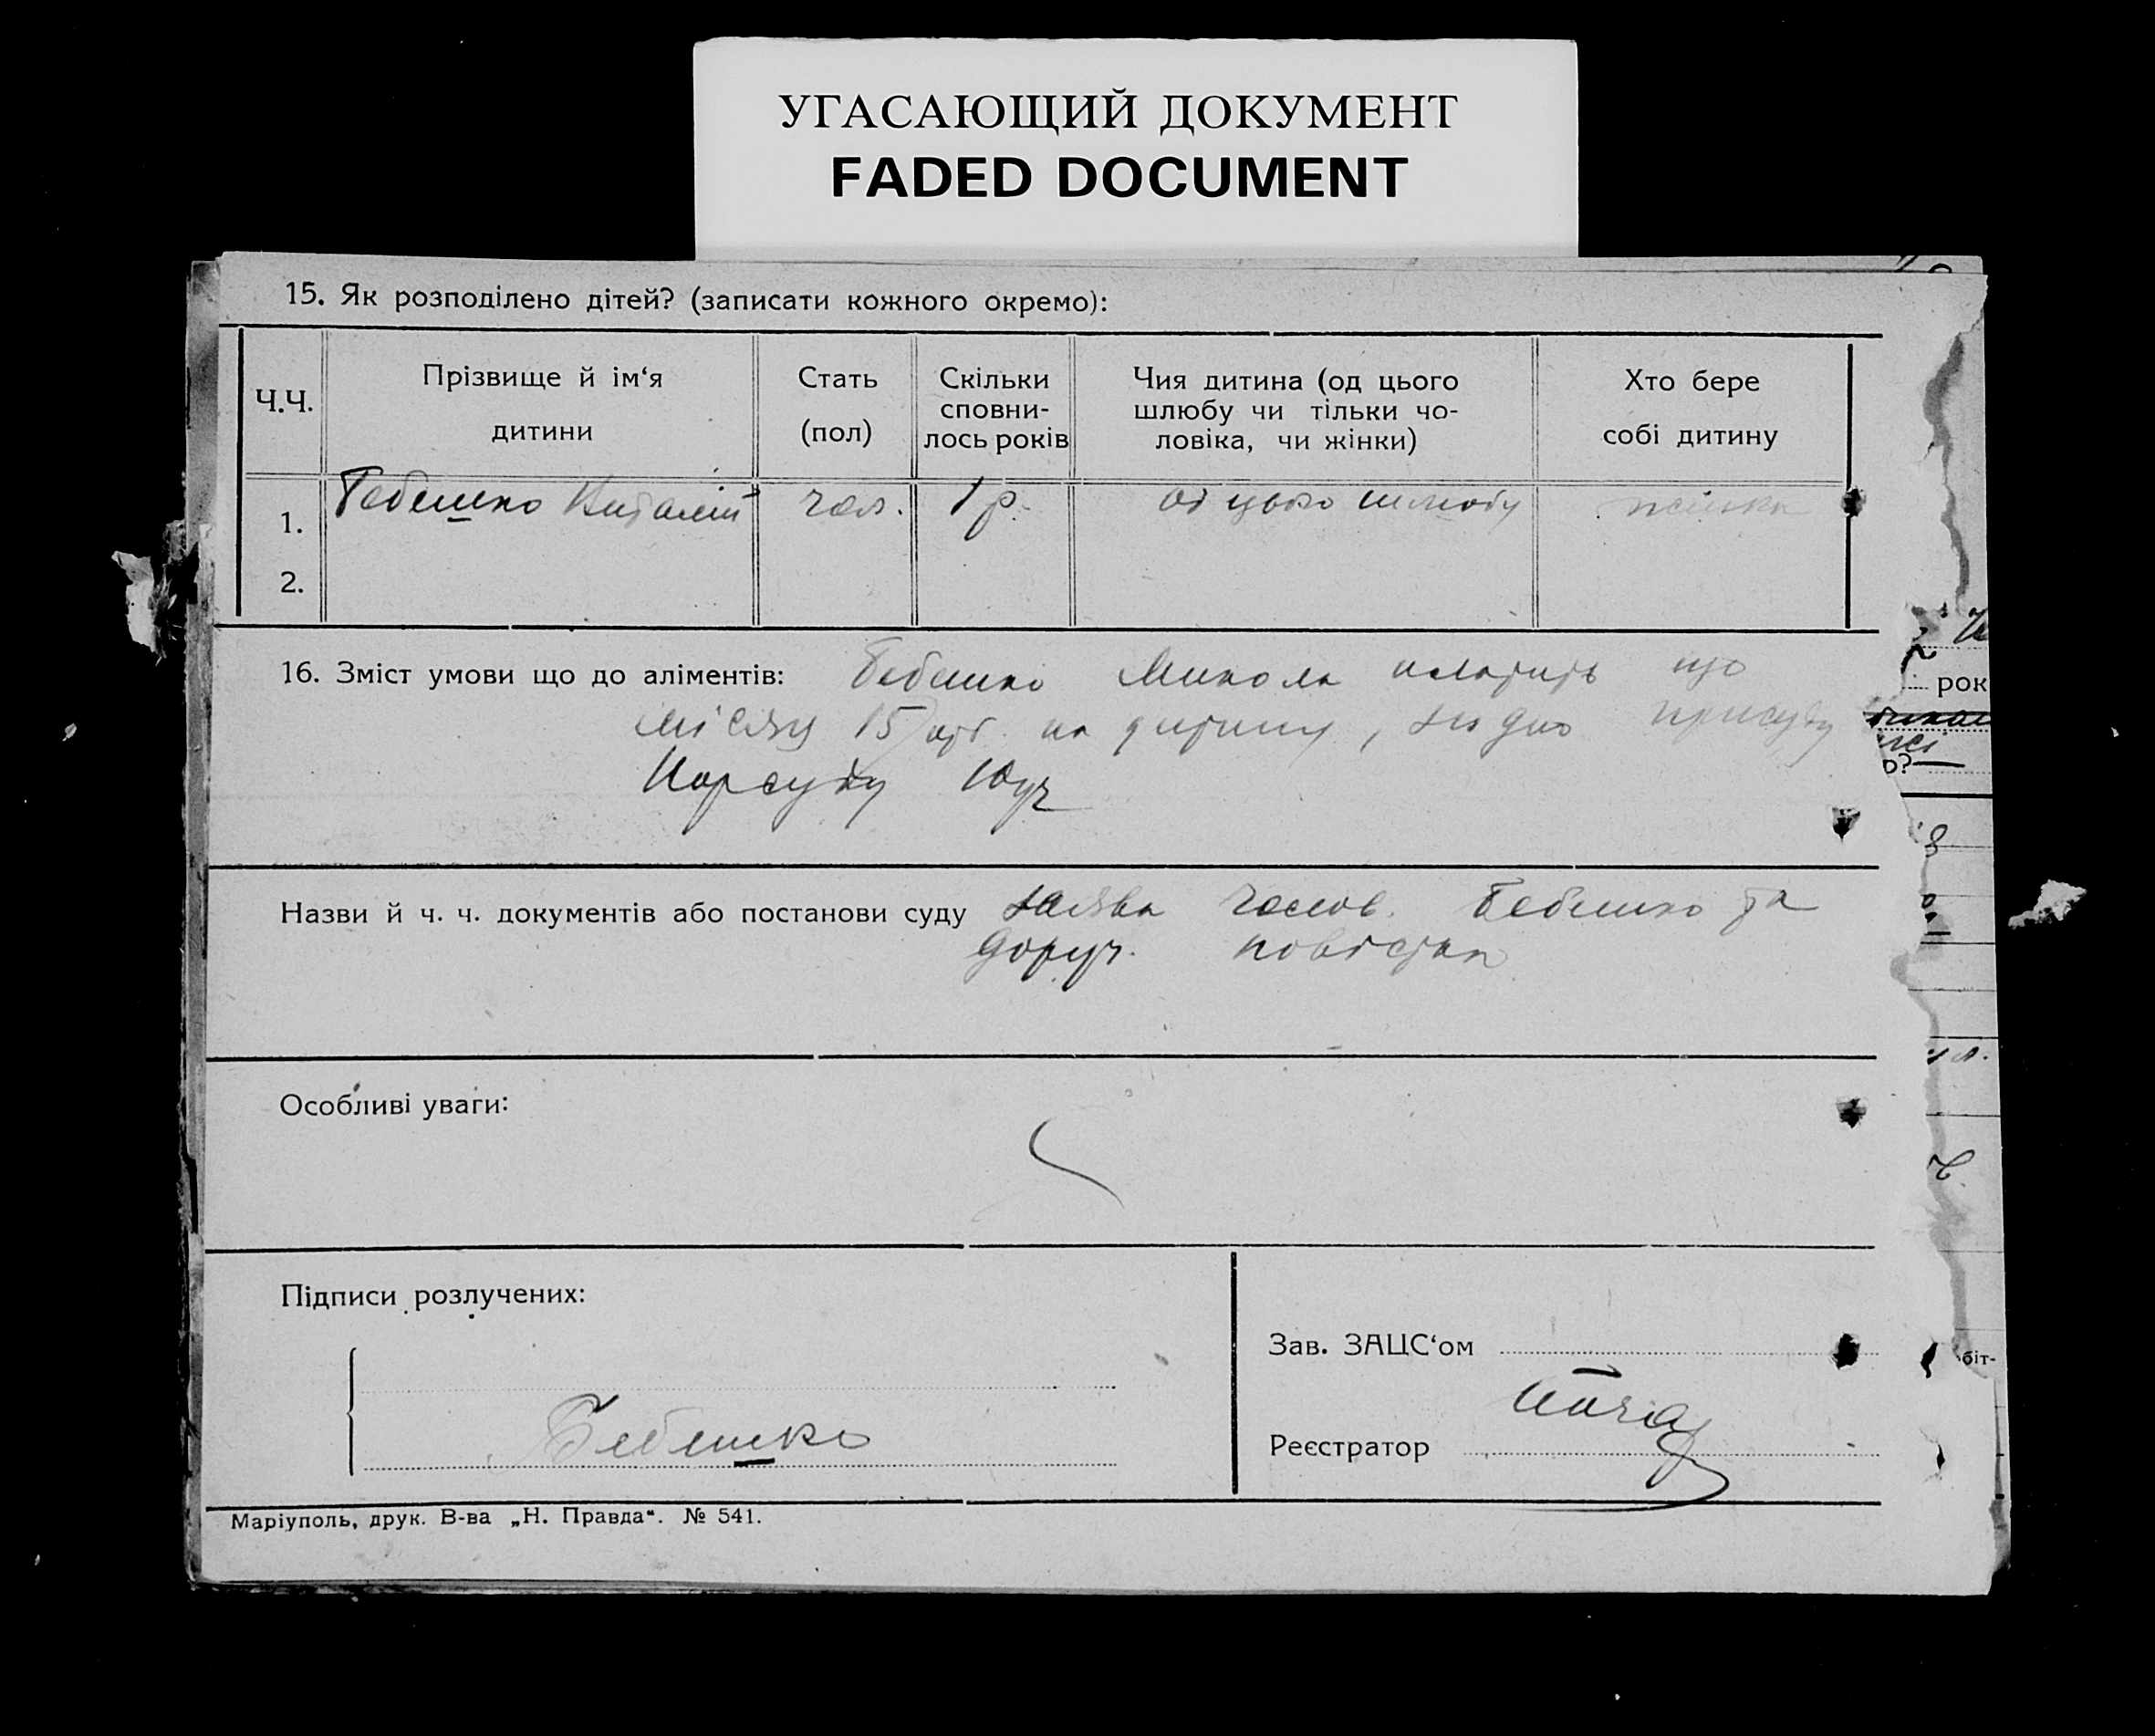 УГАСАЮЩИЙ ДОКУМЕНТ
FADED DOCUMENT
15. Як розподілено дітей? (записати кожного окремо):
Ч.Ч.
Прізвище й ім‘я
дитини
Стать
(пол)
Скільки
сповни-
лось років
Чия дитина (од цього
шлюбу чи тільки чо-
ловіка, чи жінки)
Хто бере
собі дитину
1. Бебешко Виталій чол. 1 р. од цього шлюбу жінка
2.
16. Зміст умови що до аліментів: Бебешко Микола платить що
місяця 15 крб. на дитину, згідно присуду
Нарсуду
Назви й ч. ч. документів або постанови суду заява чолов. Бебешко та
доруч. повістка
Особливі уваги:
Підписи розлучених:
Бебешко
Зав. ЗАЦС‘ом
Реєстратор
Маріуполь, друк. В-ва „Н. Правда“. № 541.
рок
о?
біт-